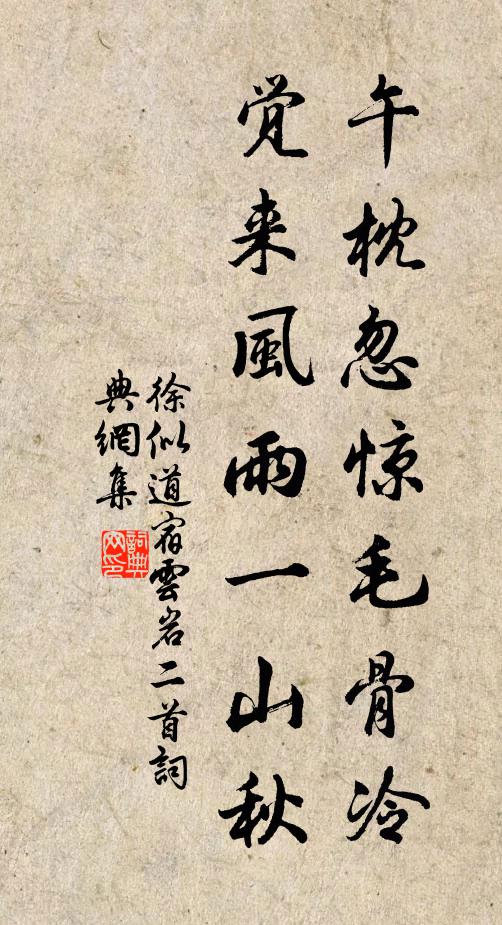 午枕忽惊毛骨冷
觉来風雨一山秋
徐似道宿雲岩二首詞
典網集
詞典网印